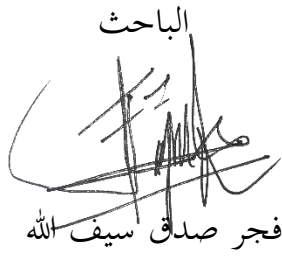 الباحث
فجر صدق سيف الله